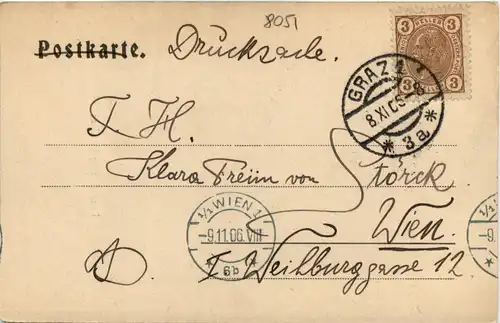 8051
Postkarte. Drucksache.
3 HELLER 3
3 3
GRAZ 1
8.XI.06
* 3a *
T. H.
Klara Freiin von Störck
Wien
1/1 WIEN 1
-9.11.06.VIII
* 6b *
1/1
-9
*
I. Weihburggasse 12.